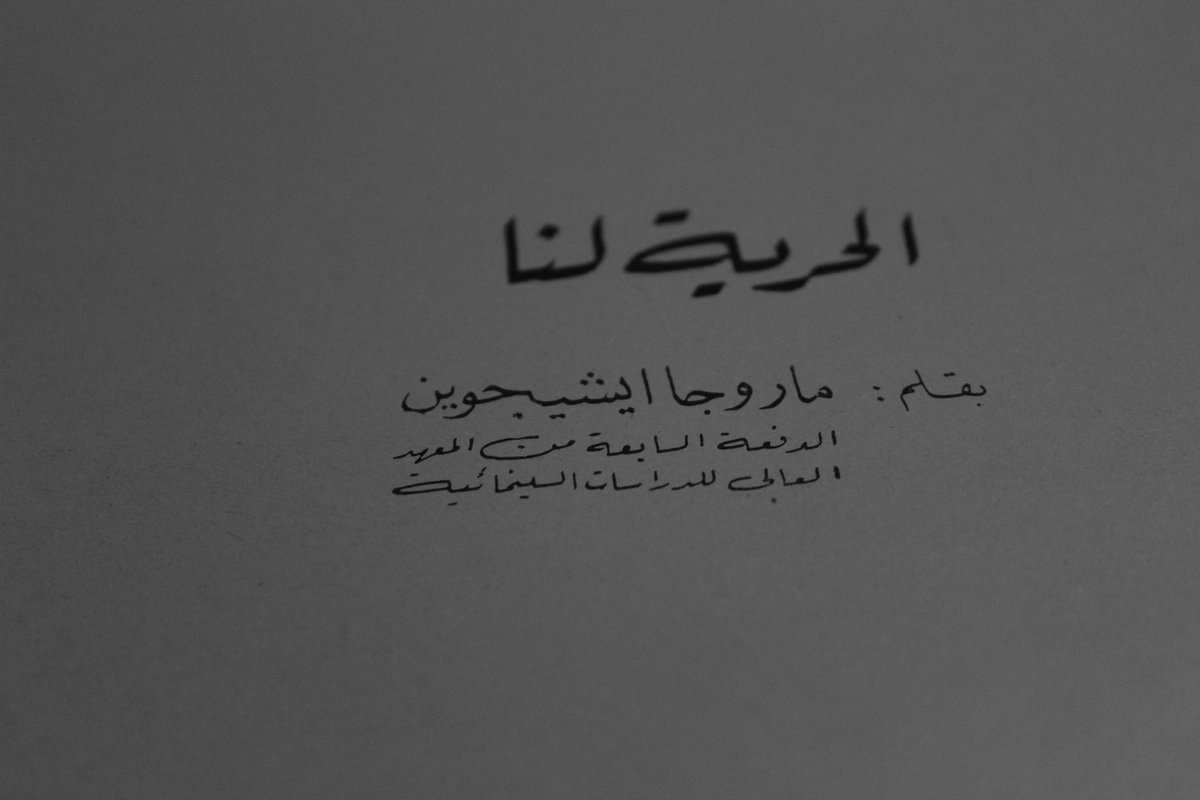 الحرية لنا
بقلم : ماروجا ايشيجوين
الدفعة السابعة من المعهد
العالى للدراسات السينمائية